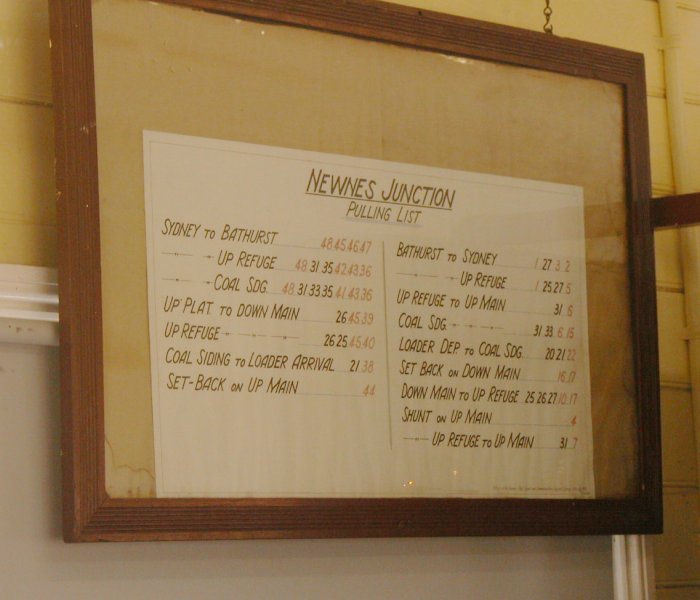 NEWNES JUNCTION
PULLING LIST
SYDNEY TO BATHURST 48.45.46.47
-"- -"- UP REFUGE 48.31.35.42.43.36
-"- -"- COAL SDG. 48.31.33.35.41.43.36
UP PLAT. TO DOWN MAIN 26.45.39
UP REFUGE -"- -"- -"- 26.25.45.40
COAL SIDING TO LOADER ARRIVAL 21.38
SET-BACK ON UP MAIN 44
BATHURST TO SYDNEY 1.27.3.2
-"- UP REFUGE 1.25.27.5
UP REFUGE TO UP MAIN 31.6
COAL SDG. -"- -"- -"- 31.33.6.15
LOADER DEP. TO COAL SDG. 20.21.22
SET BACK ON DOWN MAIN 16.17
DOWN MAIN TO UP REFUGE 25.26.27.10.17
SHUNT ON UP MAIN 4
-"- UP REFUGE TO UP MAIN 31.7